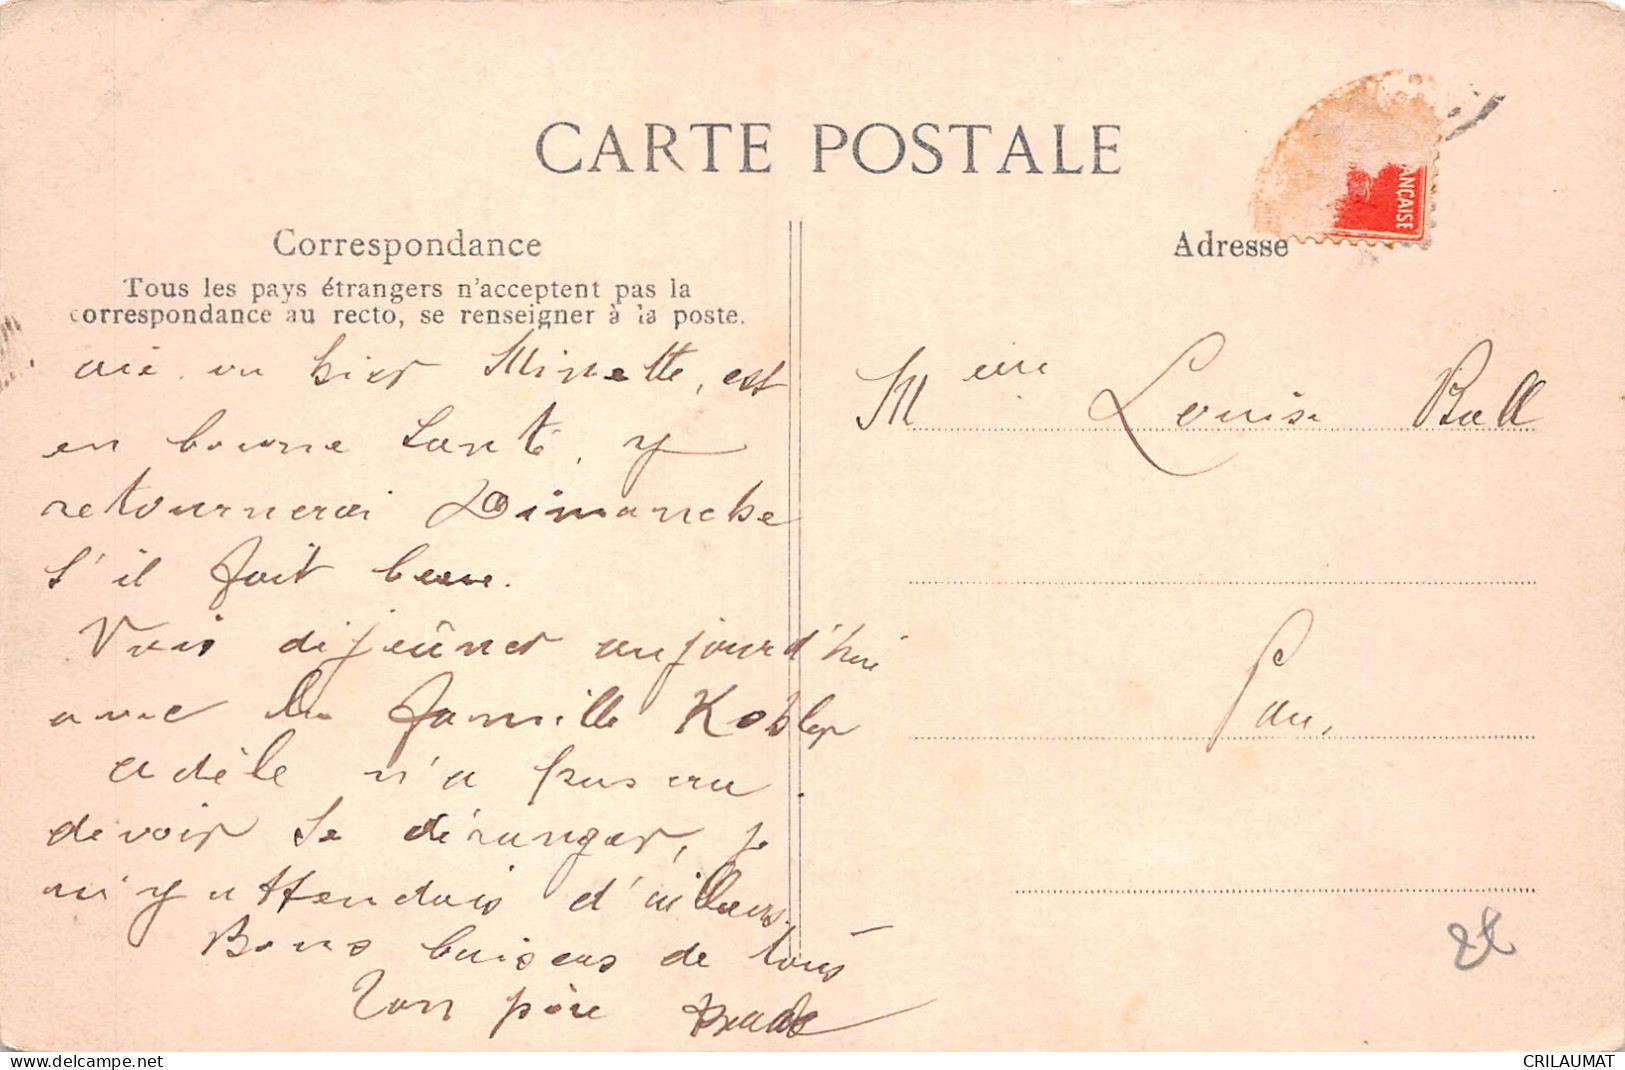 CARTE POSTALE
Correspondance
Tous les pays étrangers n'acceptent pas la
correspondance au recto, se renseigner à la poste.
Adresse
ANÇAISE
ai vu hier Minette, est
en bonne santé, y
retournerai Dimanche
s'il fait beau.
Vais déjeûner aujourd'hui
avec la famille Kobler
adèle n'a pas cru
devoir se déranger, je
m'y attendais d'ailleurs.
Bons baisers de tous
Ton père
Louise Ball
Pau,
delcampe.net
CRILAUMAT